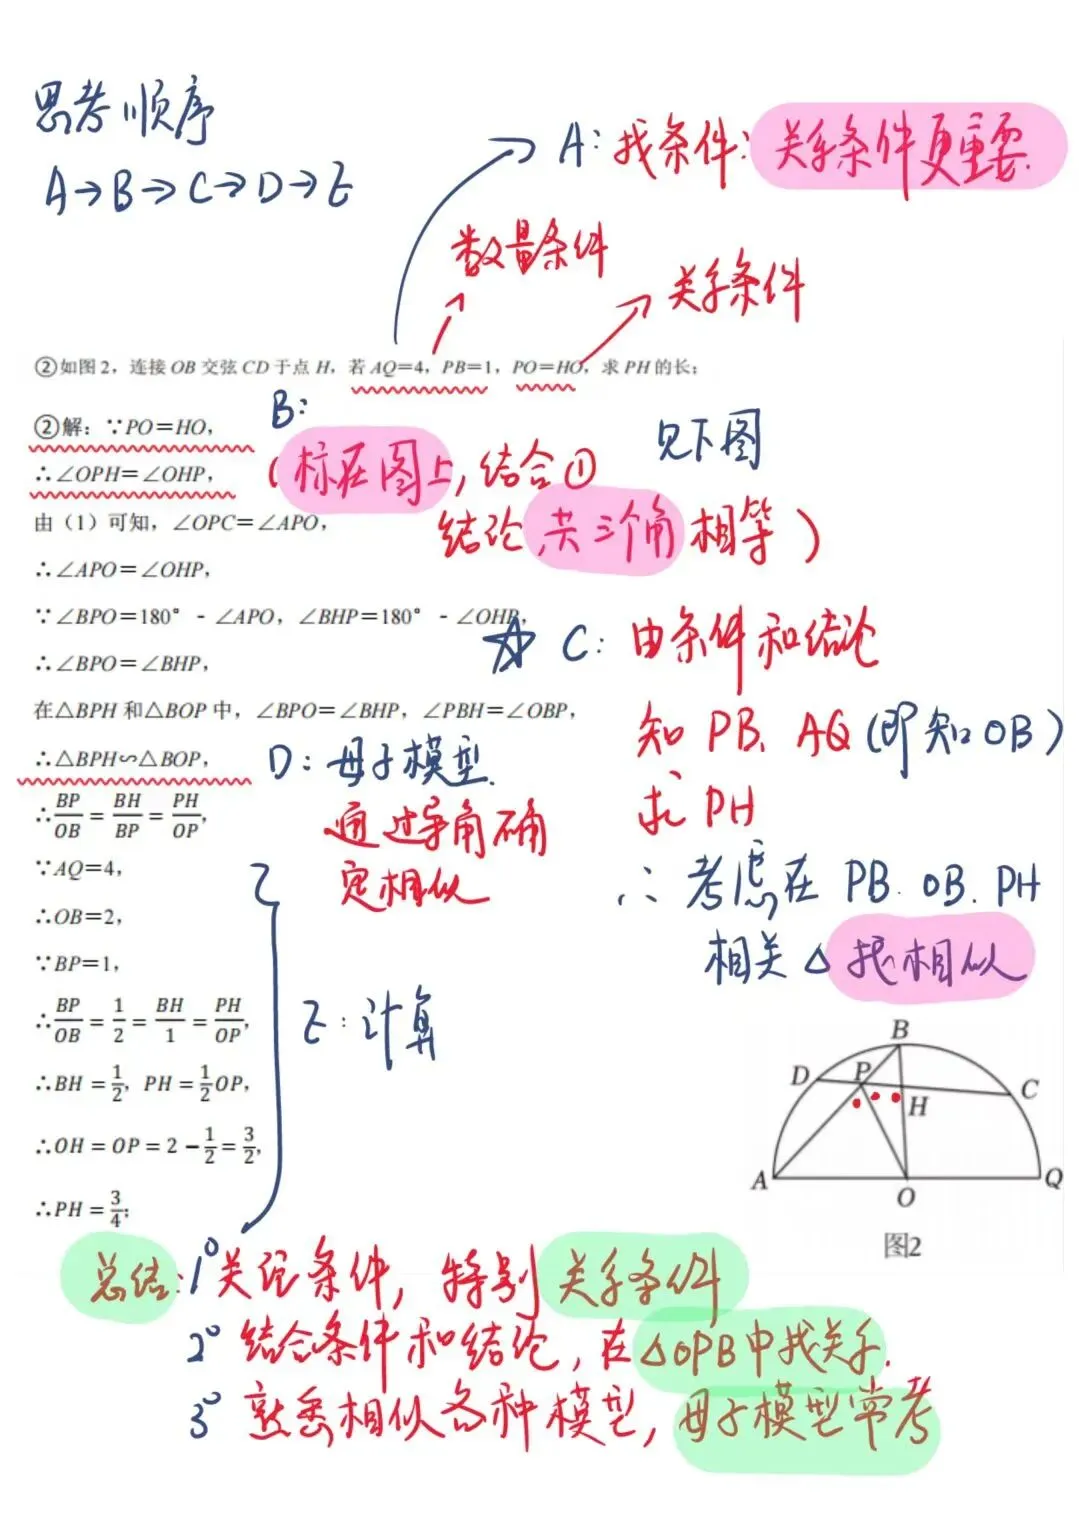 思考顺序
A→B→C→D→E
A: 找条件: 关系条件更重要.
数量条件
关系条件
②如图2，连接OB交弦CD于点H，若AQ=4，PB=1，PO=HO，求PH的长;
B:
(标在图上, 结合①
结论, 共三个角相等)
见下图
②解：∵PO=HO，
∴∠OPH=∠OHP，
由（1）可知，∠OPC=∠APO，
∴∠APO=∠OHP，
∵∠BPO=180° - ∠APO，∠BHP=180° - ∠OHP，
∴∠BPO=∠BHP，
在△BPH和△BOP中，∠BPO=∠BHP，∠PBH=∠OBP，
∴△BPH∽△BOP，
∴BP/OB=BH/BP=PH/OP，
∵AQ=4，
∴OB=2，
∵BP=1，
∴BP/OB=1/2=BH/1=PH/OP，
∴BH=1/2，PH=1/2OP，
∴OH=OP=2-1/2=3/2，
∴PH=3/4;
☆ C: 由条件和结论
知 PB、AQ(即知OB)
求 PH
∴ 考虑在 PB. OB. PH
相关△ 找相似
D: 母子模型.
通过导角确
定相似
E: 计算
B
D
P
C
H
A
O
Q
图2
总结: 1° 关注条件, 特别关系条件
2° 结合条件和结论, 在△OPB中找关系.
3° 熟悉相似各种模型, 母子模型常考